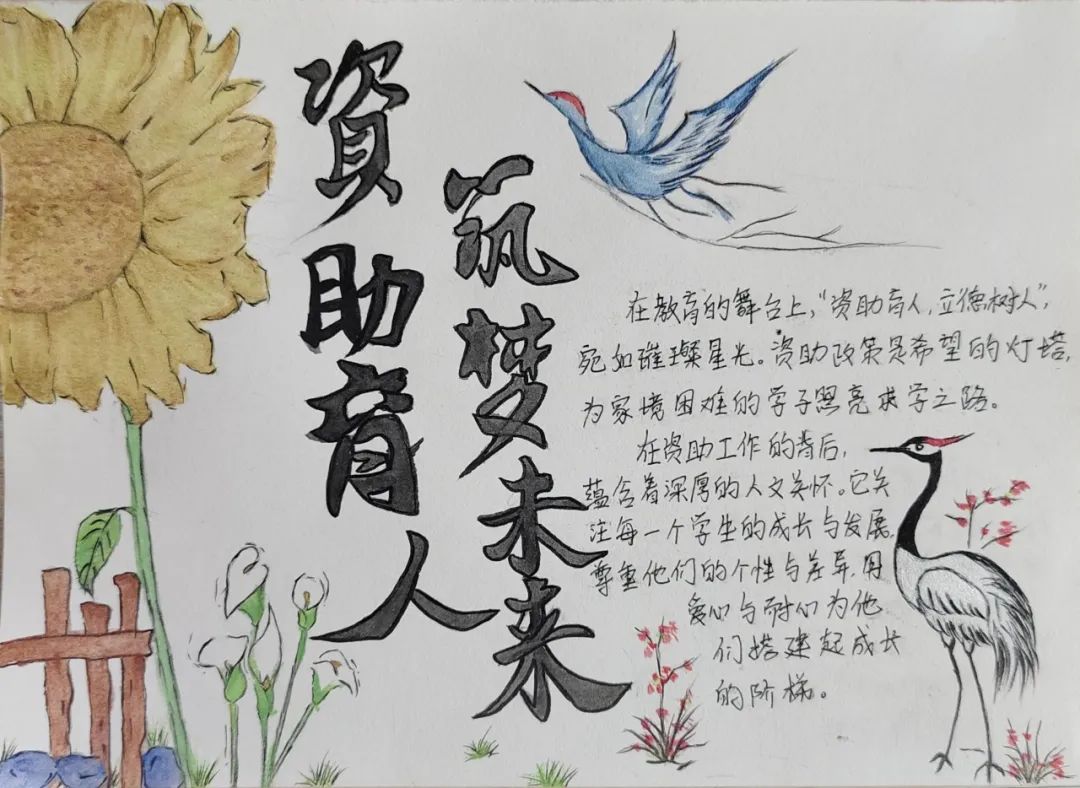 資助育人
筑梦未来
在教育的舞台上,“资助育人,立德树人”,
宛如璀璨星光。资助政策是希望的灯塔,
为家境困难的学子照亮求学之路。
在资助工作的背后,
蕴含着深厚的人文关怀。它关
注每一个学生的成长与发展,
尊重他们的个性与差异,用
爱心与耐心为他
们搭建起成长
的阶梯。